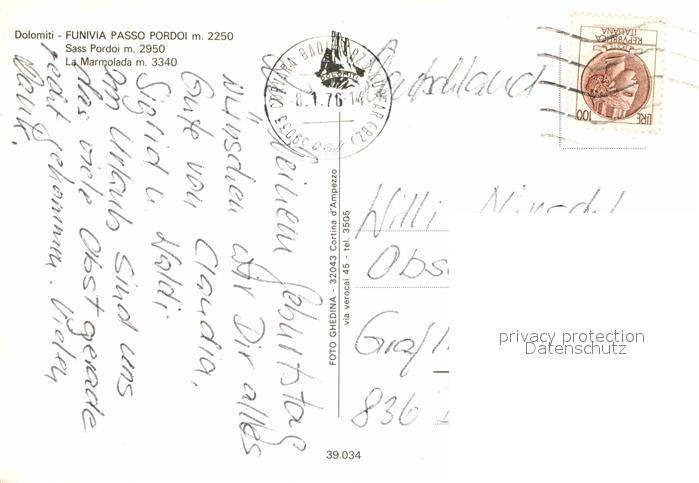 Dolomiti - FUNIVIA PASSO PORDOI m. 2250
Sass Pordoi m. 2950
La Marmolada m. 3340
Deinem Geburtstag
wünschen wir Dir alles
Gute von Claudia,
Siglid u. Waldi.
Im Urlaub sind uns
das viele Obst gerade
recht gekommen. Vielen
Dank.
FOTO GHEDINA - 32043 Cortina d'Ampezzo
via verocai 45 - tel. 3505
39033 CORVARA BADIA
(BZ)
8.1.76-14
REPVBBLICA
ITALIANA
LIRE 100
Deutschland
Willi
Obs
Graf
836
privacy protection
Datenschutz
39.034